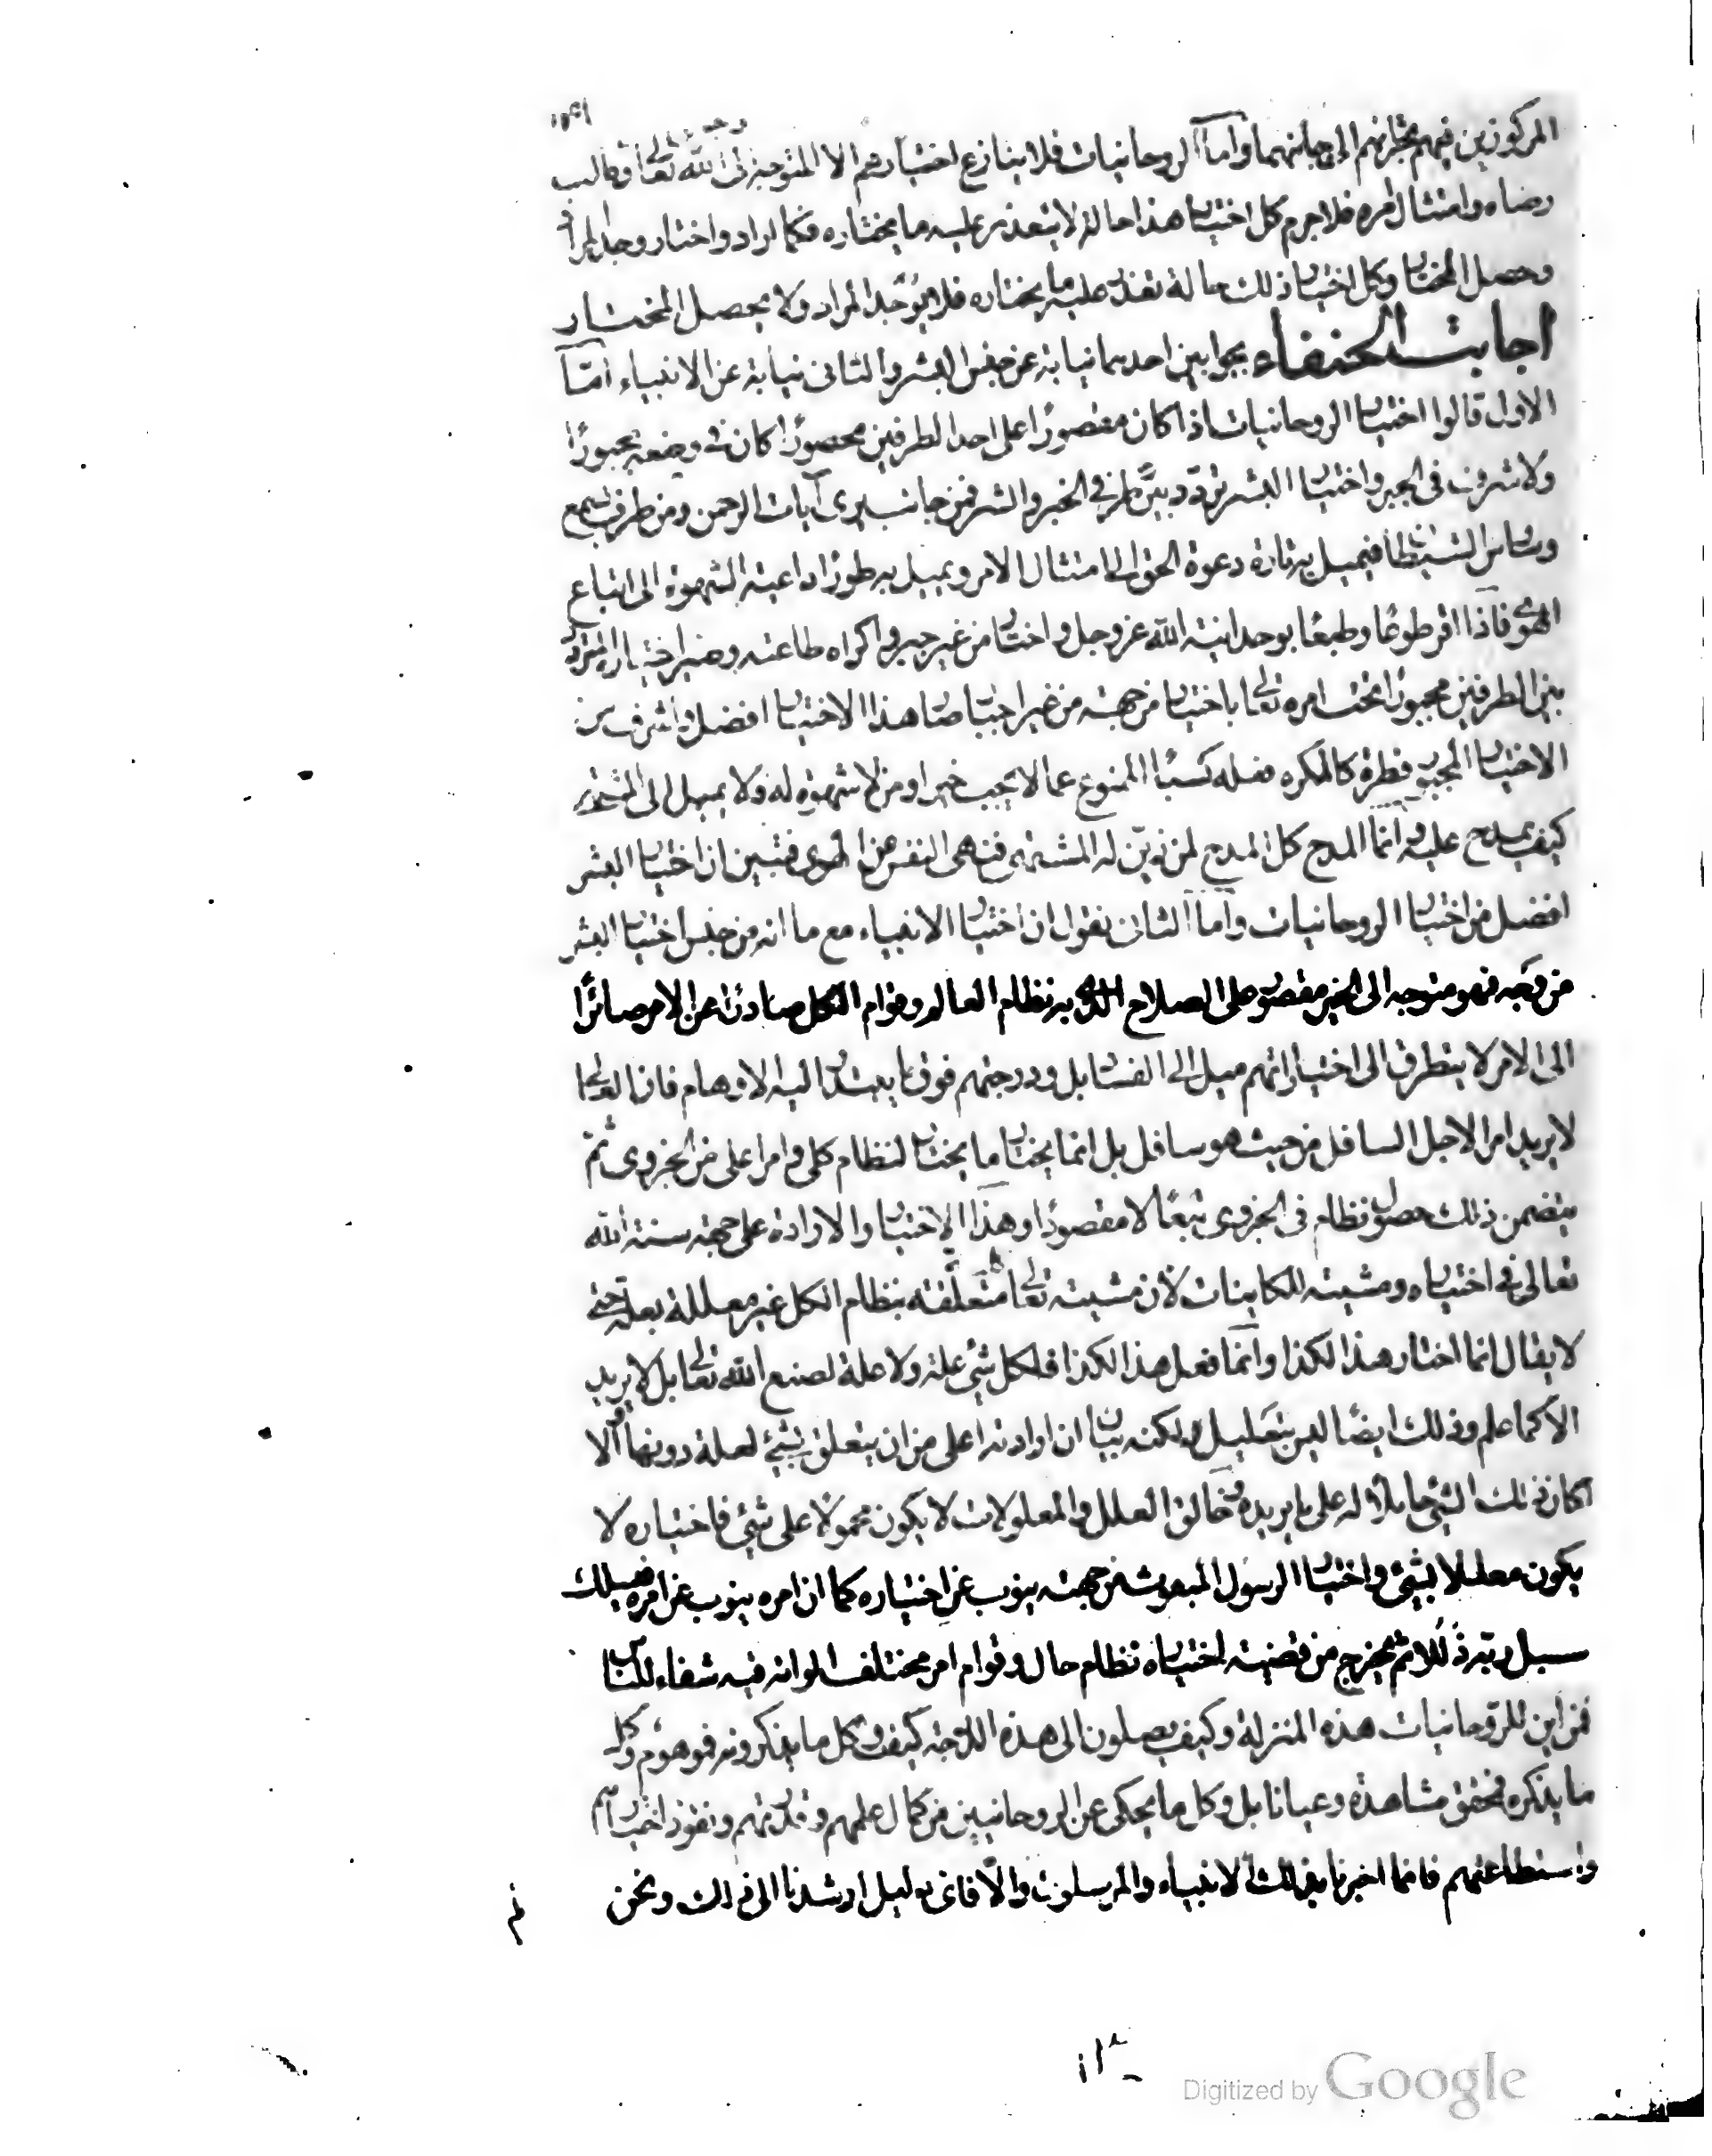 المركوزتين فيهم تجرانهم الى جانبهما واما الروحانيات فلا ينازع اختيارهم الا التوجه الى وجه الله تعالى وطلب
رضاه وامتثال امره فلا جرم كل اختيار هذا حاله لا يتعذر عليه ما يختاره فكما اراد واختار وجد المراد
وحصل المختار وكل اختيار ذلك حاله تعذر عليه ما يختاره فلا يوجد المراد ولا يحصل المختار
اجابت الحنفاء بجوابين احدهما نيابة عن جنس البشر والثاني نيابة عن الانبياء امّا
الاول قالوا اختيار الروحانيات اذا كان مقصورًا على احد الطرفين محصورًا كان في وضعه مجبورًا
ولا شرف في الجبر واختيار البشر تردد بين طرفي الخير والشر فمن جانب يرى آيات الرحمن ومن طرف يسمع
وساوس الشيطان فيميل به تارة دعوة الحق الى امتثال الامر ويميل به طورًا داعية الشهوة الى اتباع
الهوى فاذا اقر طوعًا وطبعًا بوحدانية الله عز وجل واختار من غير جبر واكراه طاعته وصير اختياره المتردد
بين الطرفين مجبورًا تحت امره تعالى باختيار من جهته من غير اجبار صار هذا الاختيار افضل واشرف من
الاختيار المجبور فطرة كالمكره فعله كسبًا الممنوع عما لا يجب خبرا ومن لا شهوة له ولا يميل الى المشتهى
كيف يمدح عليه وانما المدح كل المدح لمن زيّن له المشتهى فنهى النفس عن الهوى فتبين ان اختيار البشر
افضل من اختيار الروحانيات واما الثاني نقول ان اختيار الانبياء مع ما انه من جنس اختيار البشر
من وجه فهو متوجه الى الخير مقصور على الصلاح الذي به نظام العالم وقوام الكل صادرًا عن الامر صائرًا
الى الامر لا يتطرق الى اختياراتهم ميل الى الفساد بل ودرجتهم فوق ما يبتدر اليه الاوهام فان العالى
لا يريد امرا لاجل السافل من حيث هو سافل بل انما يختار ما يختار لنظام كلى وامر اعلى من الجزوى ثم
يتضمن ذلك حصول نظام في الجزوى تبعًا لا مقصودًا وهذا الاختيار والارادة على جهة سنة الله
تعالى في اختياره ومشيته للكاينات لان مشيته تعالى متعلقة بنظام الكل غير معللة بعلة حتى
لا يقال انما اختار هذا لكذا وانما فعل هذا لكذا فلكل شئ علة ولا علة لصنع الله تعالى بل لا يريد
الا كما علم وذلك ايضًا ليس بتعليل ولكنه بيان ان ارادته اعلى من ان يتعلق بشئ لعلة دونها والا
لكان ذلك الشئ حاملا له على ما يريده وخالق العلل والمعلولات لا يكون محمولا على شئ فاختياره لا
يكون معللا بشئ واختيار الرسول المبعوث من جهته ينوب عن اختياره كما ان امره ينوب عن امره فيسلك
سبل ربه ذللا ثم يخرج من قضية اختياره نظام حال وقوام امر مختلف الوانه فيه شفاء للناس
فمن اين للروحانيات هذه المنزلة وكيف يصلون الى هذه الدرجة كيف وكل ما يذكرونه فموهوم وكل
ما يذكره فمحقق مشاهدة وعيانا بل وكل ما يحكى عن الروحانيين من كمال علمهم وقدرتهم ونفوذ اختيارهم
واستطاعتهم فانما اخبرنا بذلك الانبياء والمرسلون والا فاى دليل ارشدنا الى ذلك ونحن
لم
Digitized by Google